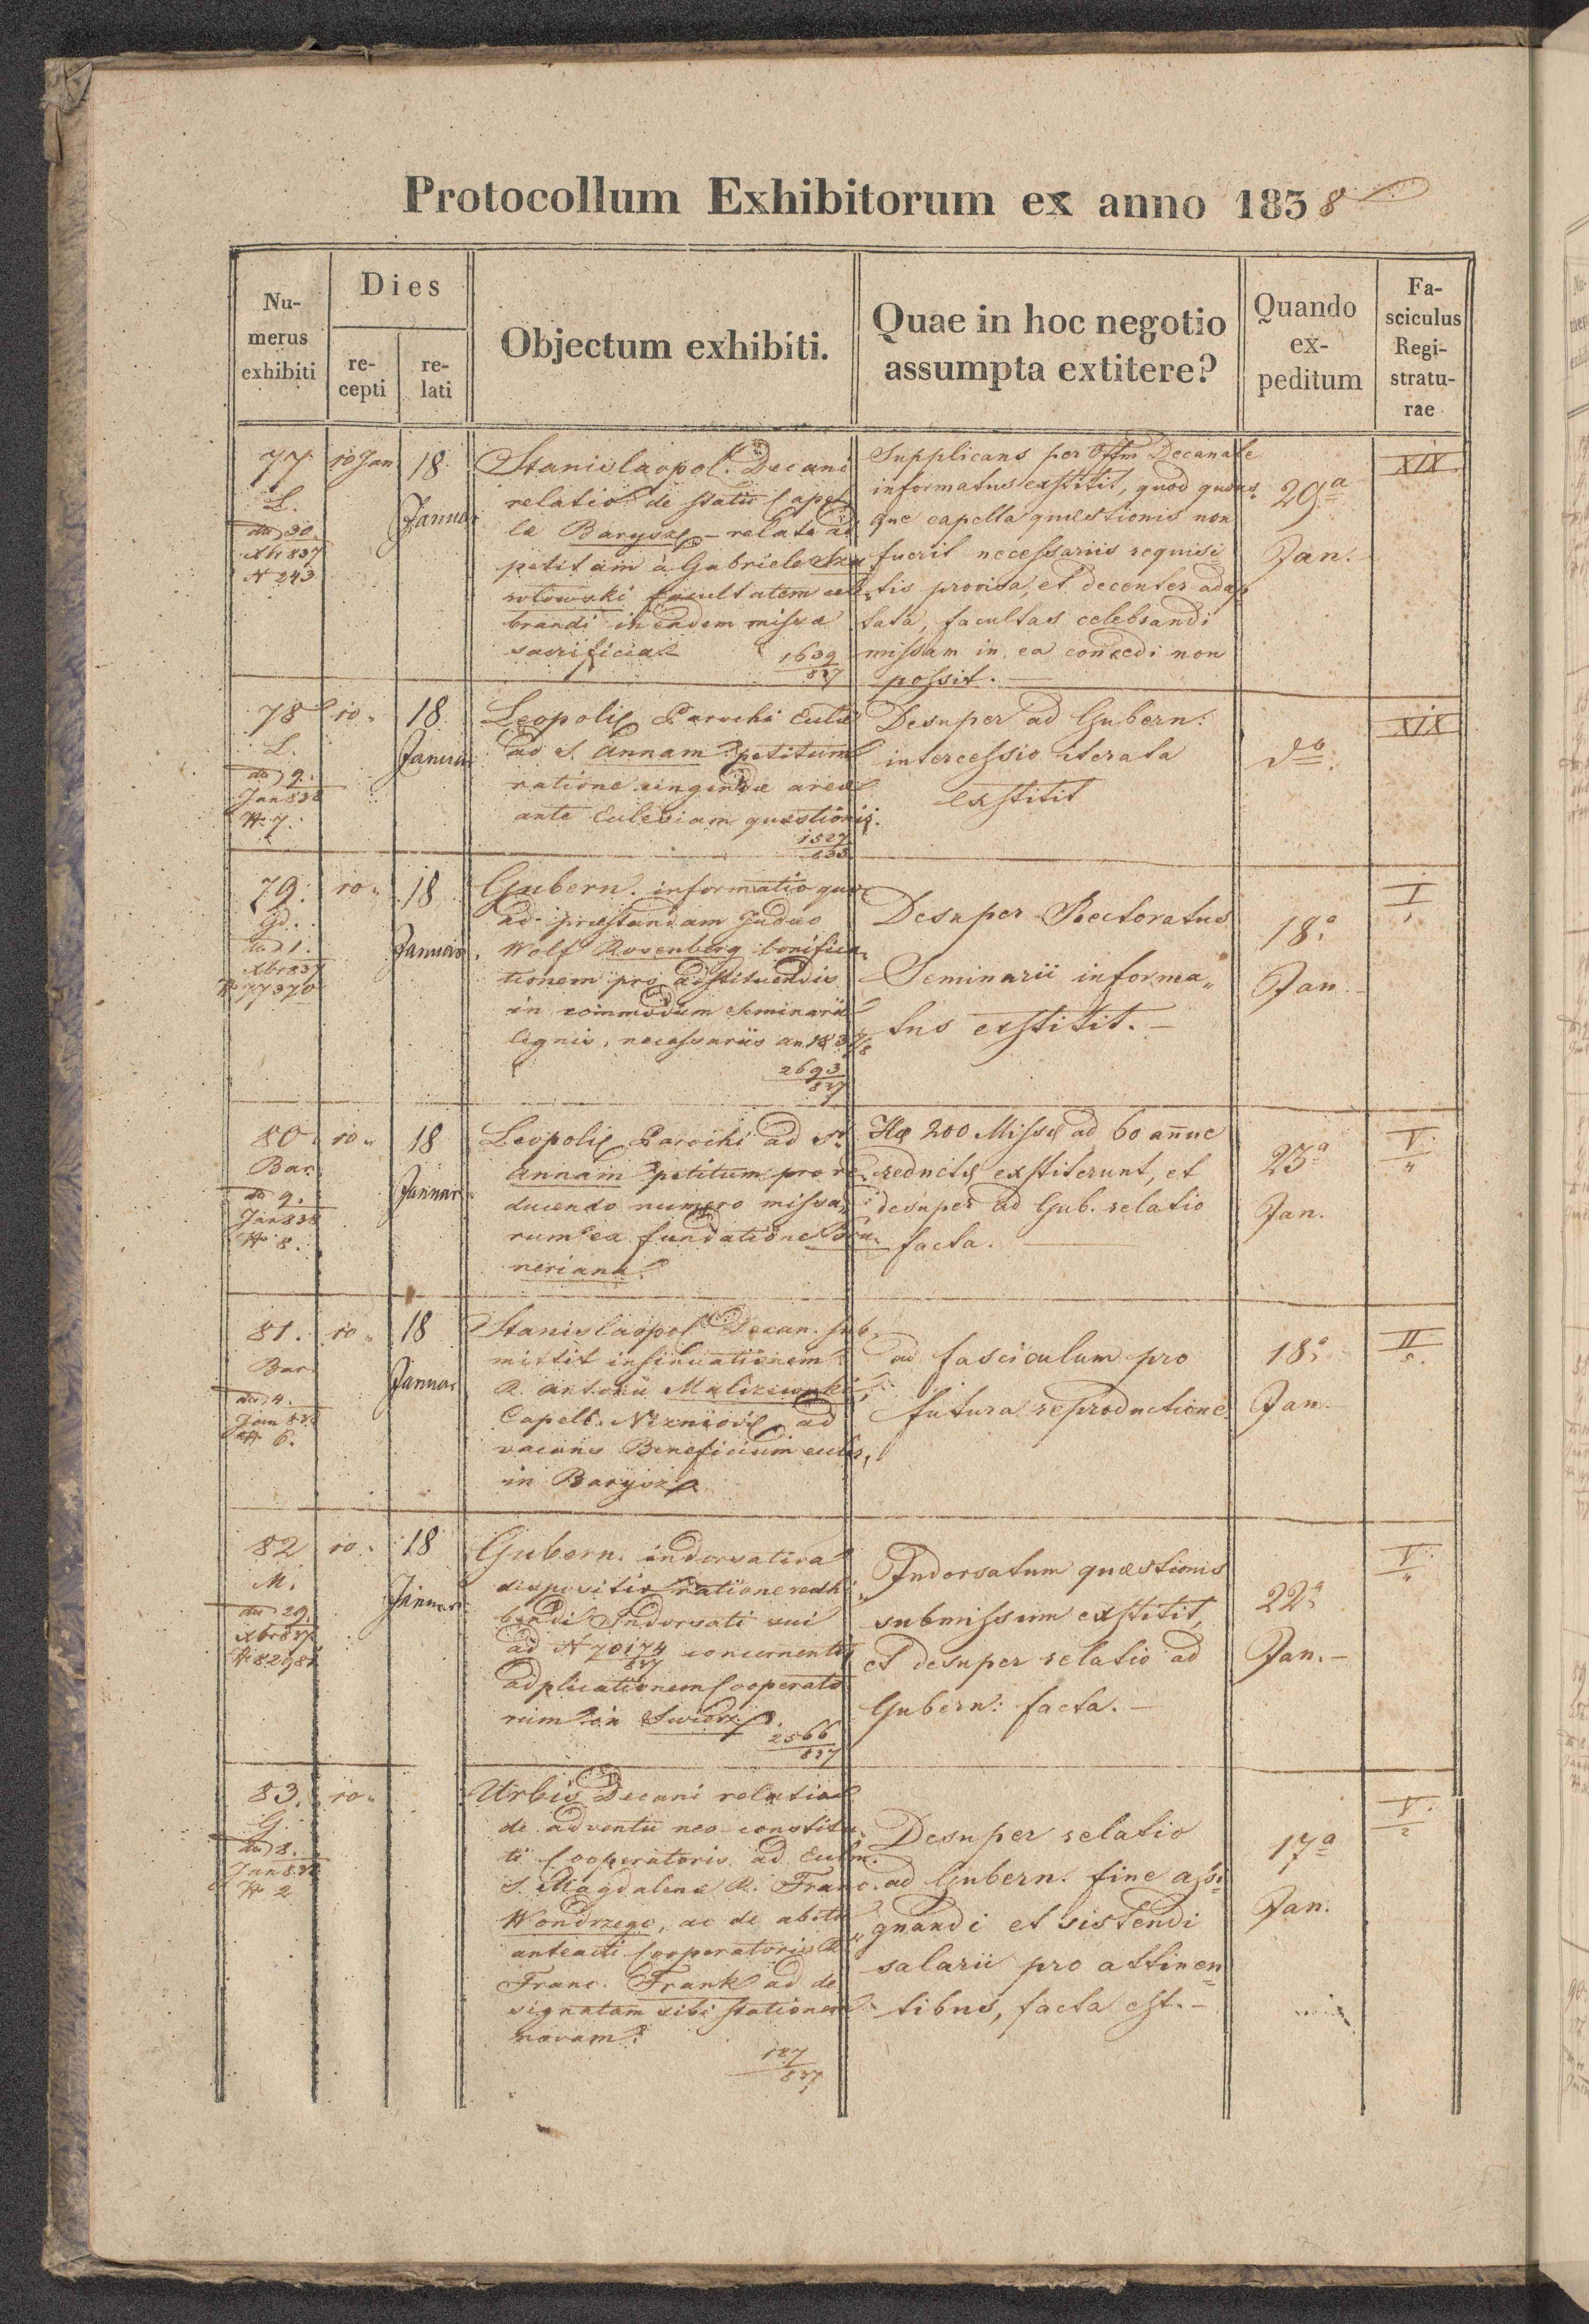 Protocollum Exhibitorum ex anno 1838
Nu-
merus
exhibiti
Dies
re-
cepti
re-
lati
Objectum exhibiti.
Quae in hoc negotio
assumpta extitere?
Quando
ex-
peditum
Fa-
sciculus
Regi-
stratu-
rae
77
L.
dto 30.
Xbr 837
N 243
10 Jan
18
Januar
Stanislaopol. Decani
relatio de statu Capel
læ Barysz – relate ad
petitam à Gabriele
facultatem cele
brandi in eadem missæ
sacrificia
1639
837
Supplicans per Offm Decanale
informatus exstitit, quod quous
que capella quæstionis non
fuerit necessariis requisi
tis provisa, et decenter adap
tata, facultas celebrandi
missam in ea concedi non
possit. —
29a
Jan. –
XIX
78
L.
dto 9.
Jan 838
N 7.
10 "
18
Januar
Leopoli Parochi Eccl
ad S. Annam petitum
ratione cingendæ areæ
ante Ecclesiam quæstionis.
1527
833
Desuper ad Gubern:
intercessio iterata
exstitit
dto.
XIX
79.
Gd.
dto 1.
Xbr 837
N 77370
10 "
18
Januar
Gubern. informatio quo
ad præstandam Judæo
Wolf Rosenberg bonifica
tionem pro adstituendis
in commodum Seminarii
lignis, necessariis an 1837/8
2693
837
Desuper Rectoratus
Seminarii informa„
tus exstitit. –
18a
Jan –
I
1
80
Bar.
dto 9.
Jan 838
N 8.
10 "
18
Januar
Leopoli Parochi ad St.
Annam petitum pro re
ducendo numero missa„
rum ex fundatione Bru
neriana.
Hæ 200 Missæ ad 60 annue
reductæ exstiterunt, et
desuper ad Gub. relatio
facta. —
23a
Jan.
V.
"
81.
Bar.
dto 4.
Jan 838
N 6.
10 "
18
Januar
Stanislaopol Decan. sub
mittit insinuationem
R. Antonii
Capell. ad
vacans Beneficium eccl.
in Barysz
ad fasciculum pro
futura reproductione.
18a
Jan –
II
5.
82
M.
dto 29.
Xbr 837
N 82981
10 "
18
Januar
Gubern. indorsatira
dispositio ratione redhi
bendi Indorsati sui
ad N 70174
837
concernentis
adplicationem Cooperato
rum in
2566
837
Indorsatum quæstionis
submissum exstitit,
et desuper relatio ad
Gubern: facta. –
22a
Jan. –
V.
"
83.
G.
dto 8.
Jan 838
N 2
10 "
Urbis Decani relatio
de adventu neo-constitu
ti Cooperatoris ad Eccl.
S. Magdalenæ R. Franc.
Wondrzego, ac de abitu
anteacti Cooperatoris R.
Franc. Frank ad de
signatam sibi stationem
novam.
187
837
Desuper relatio
ad Gubern. fine assi
gnandi et sistendi
salarii pro attinen
tibus, facta est. –
17a
Jan.
V.
2